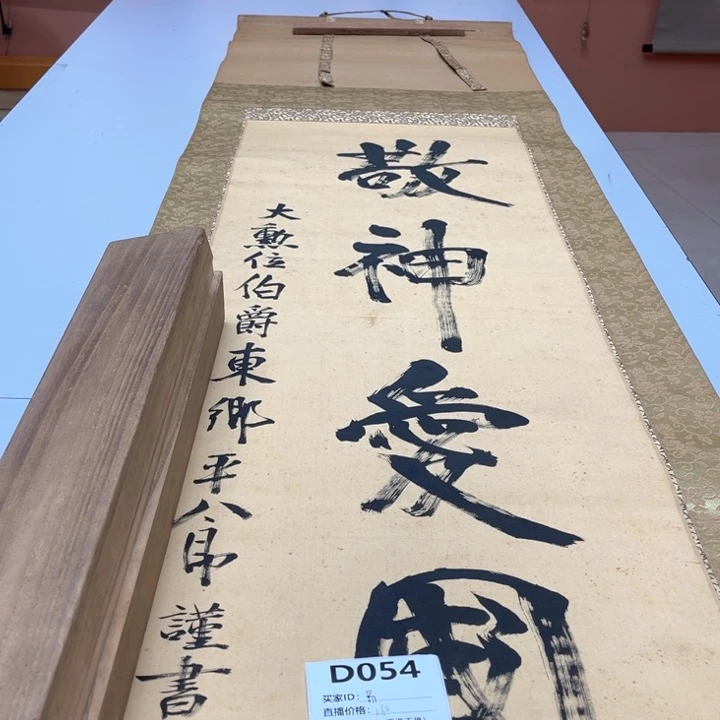 敬神愛國
大勲位伯爵東郷平八郎謹書
D054
买家ID:
直播价格: